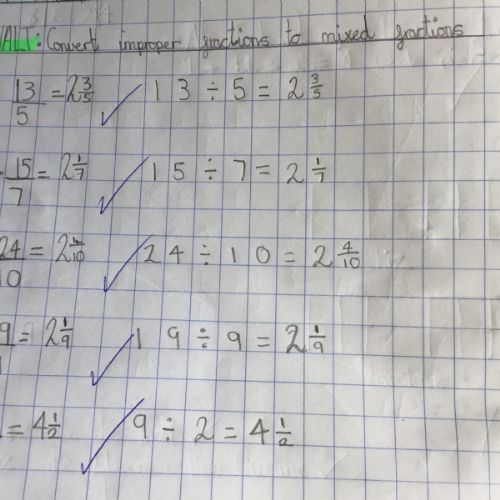 WALT: Convert improper fractions to mixed fractions
13/5 = 2 3/5 13 ÷ 5 = 2 3/5
15/7 = 2 1/7 15 ÷ 7 = 2 1/7
24/10 = 2 4/10 24 ÷ 10 = 2 4/10
9 = 2 1/9 19 ÷ 9 = 2 1/9
= 4 1/2 9 ÷ 2 = 4 1/2